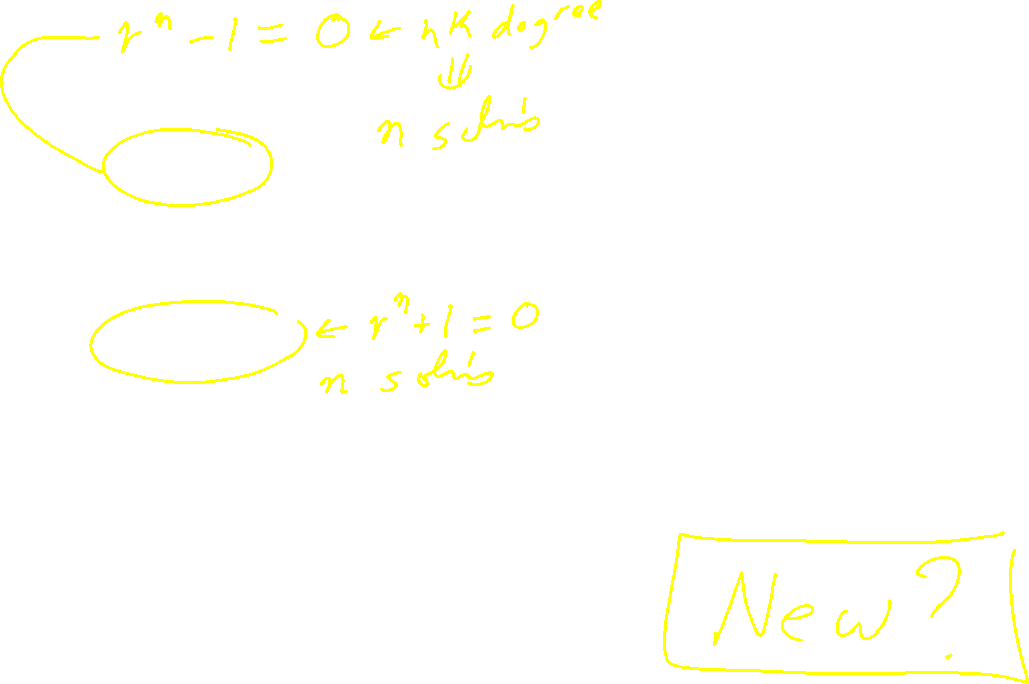 rⁿ - 1 = 0 ← nth degree
⇓
n sol'ns
← rⁿ + 1 = 0
n sol'ns
New?